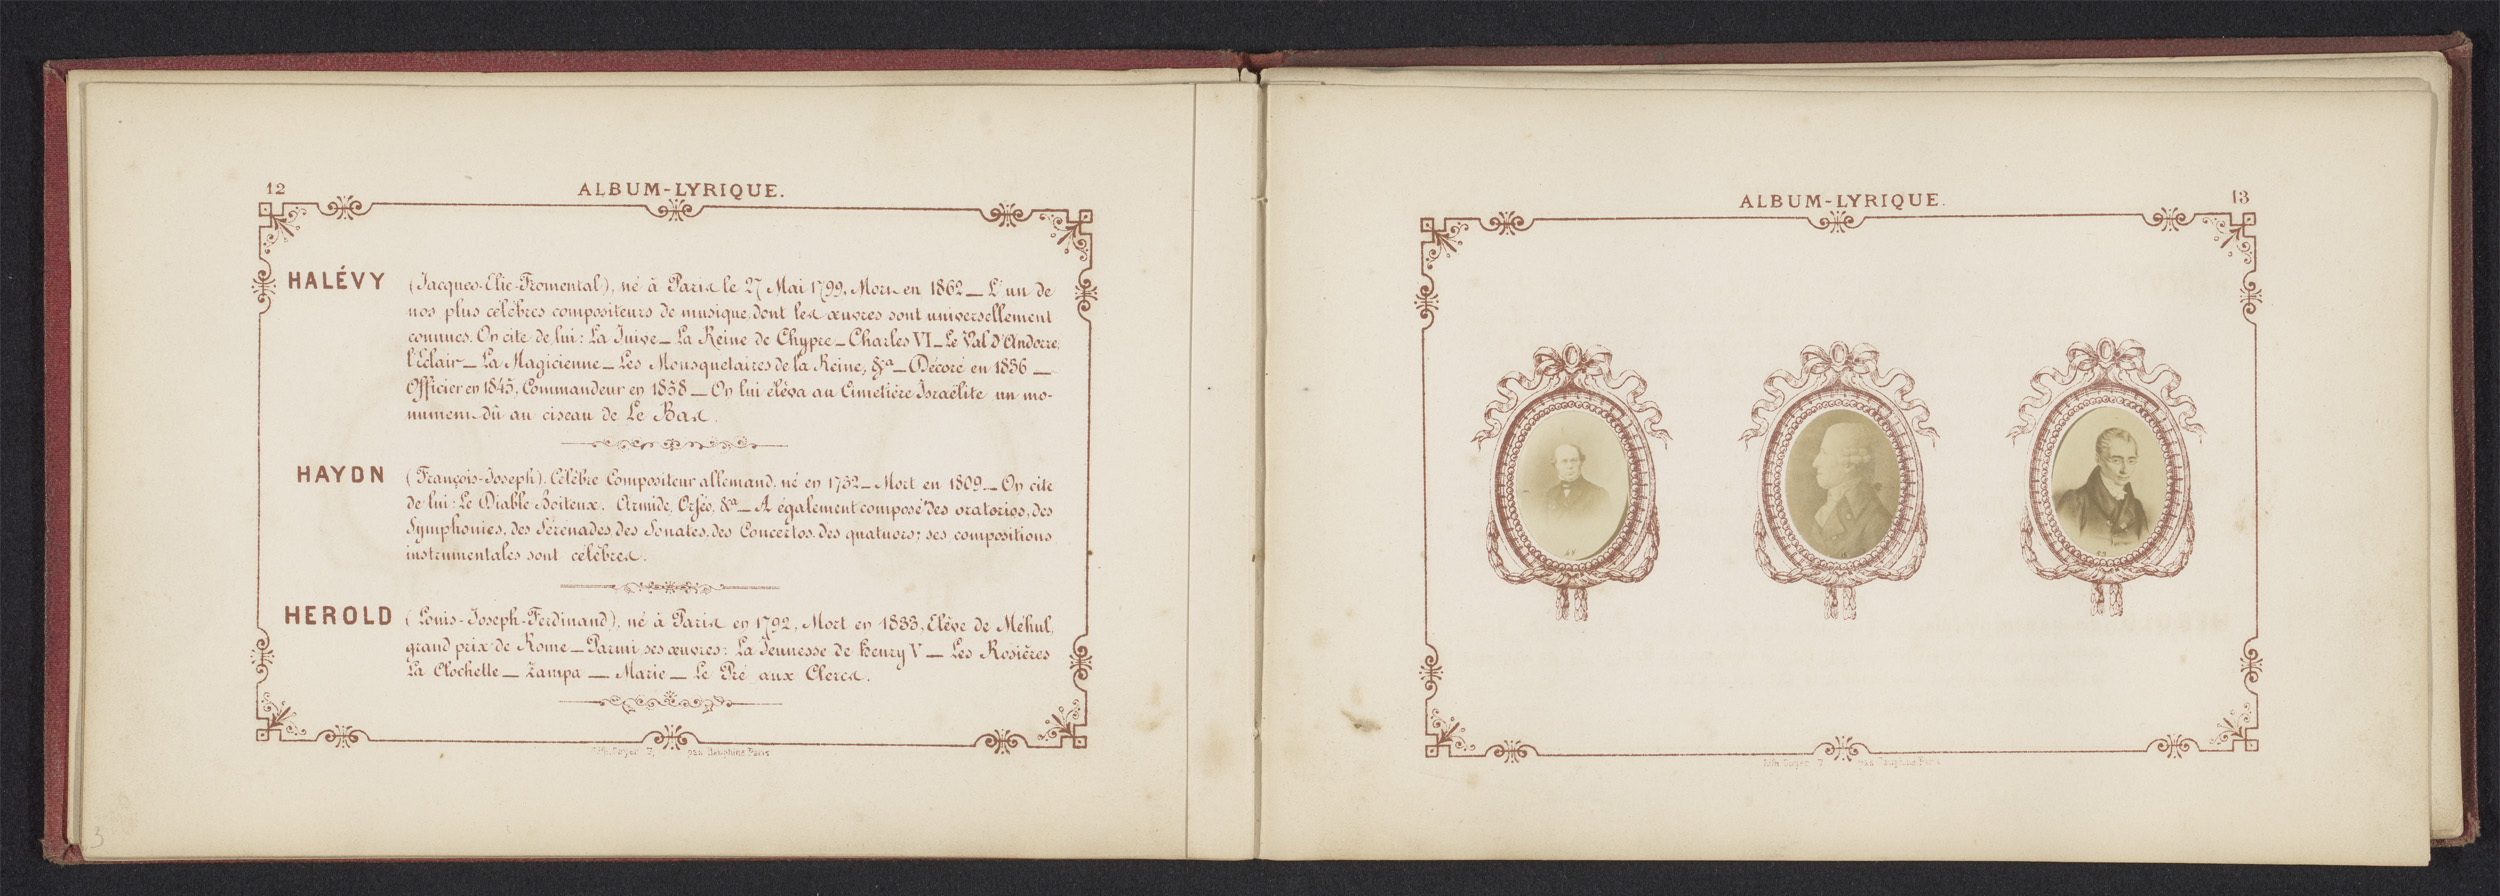 12
ALBUM-LYRIQUE.
HALÉVY (Jacques-Elie-Fromental), né à Paris le 27 Mai 1799, Mort en 1862 _ L'un de
nos plus célèbres compositeurs de musique, dont les œuvres sont universellement
connues. On cite de lui: La Juive _ La Reine de Chypre _ Charles VI _ Le Val d'Andorre,
l'Eclair _ La Magicienne _ Les Mousquetaires de la Reine, &a _ Décoré en 1836 _
Officier en 1845, Commandeur en 1858 _ On lui éleva au Cimetière Israëlite un mo-
nument dû au ciseau de Le Bas.
HAYDN (François-Joseph). Célèbre Compositeur allemand, né en 1732 _ Mort en 1809 _ On cite
de lui: Le Diable Boiteux. Armide, Orféo, &a _ A également composé des oratorios, des
Symphonies, des Sérénades, des Sonates, des Concertos, des quatuors; ses compositions
instrumentales sont célèbres.
HEROLD (Louis-Joseph-Ferdinand), né à Paris en 1792, Mort en 1833, Elève de Méhul,
grand prix de Rome _ Parmi ses œuvres: La Jeunesse de Henry V _ Les Rosières
La Clochette _ Zampa _ Marie _ Le Pré aux Clercs.
Lith. Guyer 7, pas. Dauphine Paris
3
ALBUM-LYRIQUE.
13
53
Lith. Guyer 7 pas. Dauphine Paris